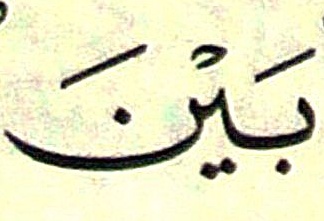 بَيْنَ